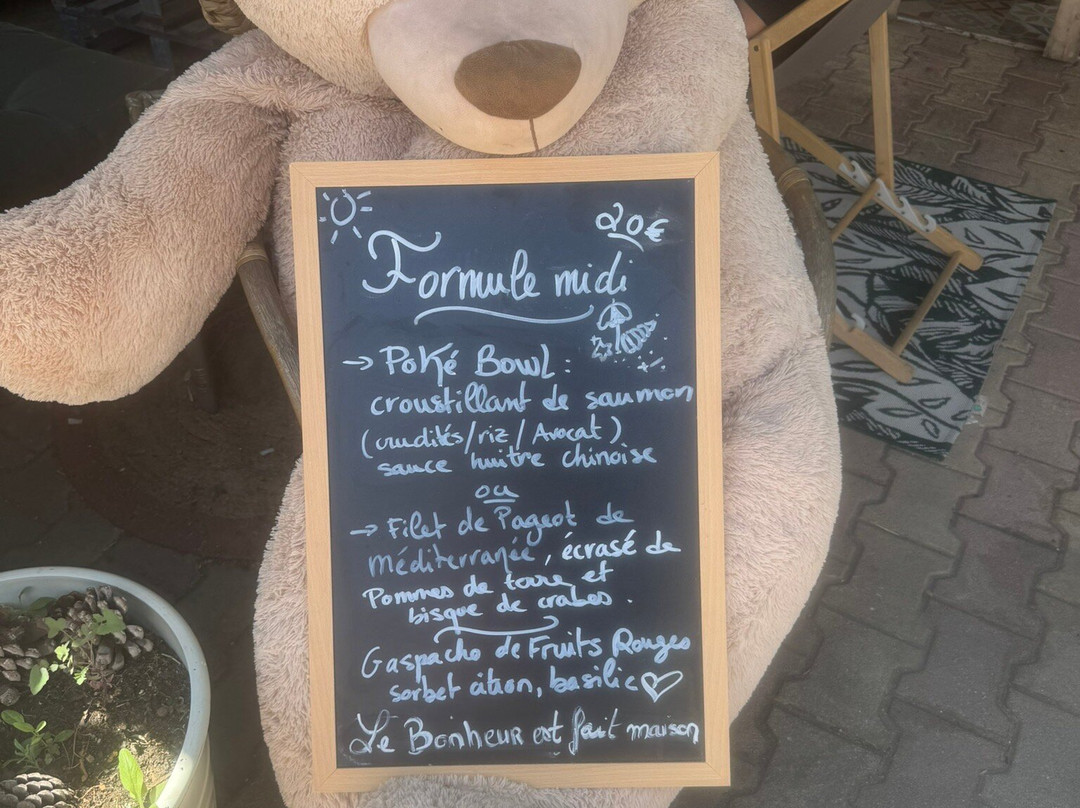 20€
Formule midi
→ Poké Bowl :
croustillant de saumon
(crudités/riz/Avocat)
sauce huitre chinoise
ou
→ Filet de Pageot de
méditerranée, écrasé de
Pommes de terre et
bisque de crabes.
Gaspacho de Fruits Rouges
sorbet citron, basilic ♡
Le Bonheur est fait maison